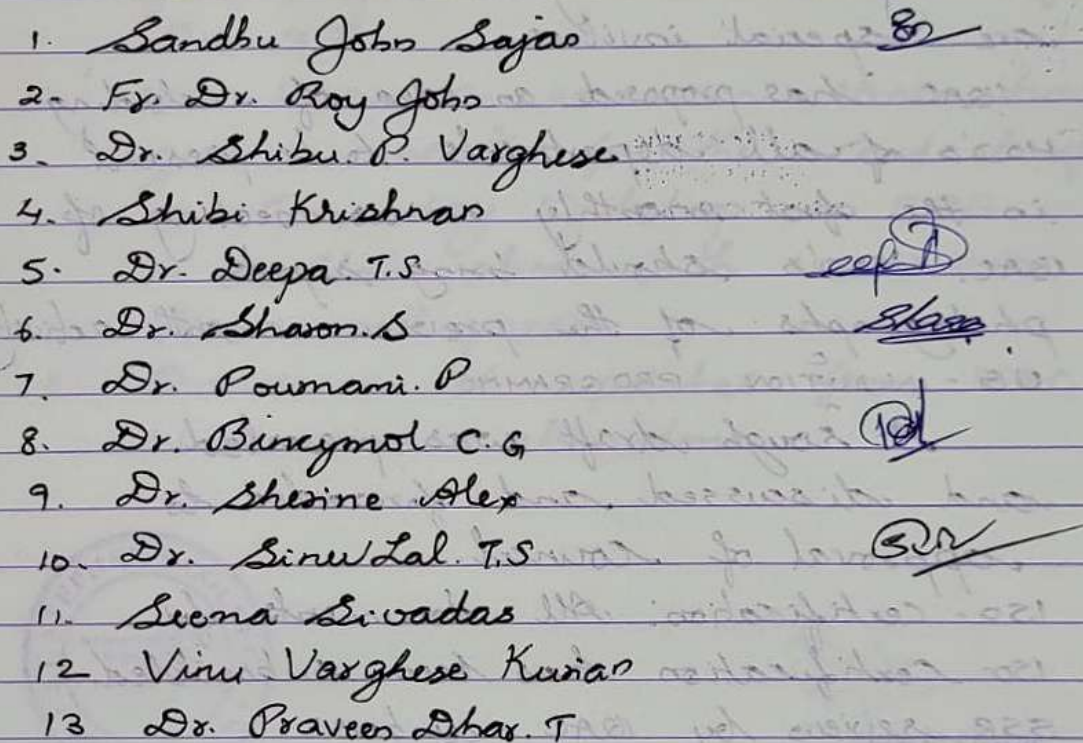 1. Sandhu John Sajan
2. Fr. Dr. Roy John
3. Dr. Shibu. P. Varghese
4. Shibi Krishnan
5. Dr. Deepa T.S
6. Dr. Sharon. S
7. Dr. Pournami. P
8. Dr. Bincymol C. G
9. Dr. Sherine Alex
10. Dr. Sinu Lal. T.S
11. Seena Sivadas
12 Vinu Varghese Kurian
13 Dr. Praveen Dhar. T